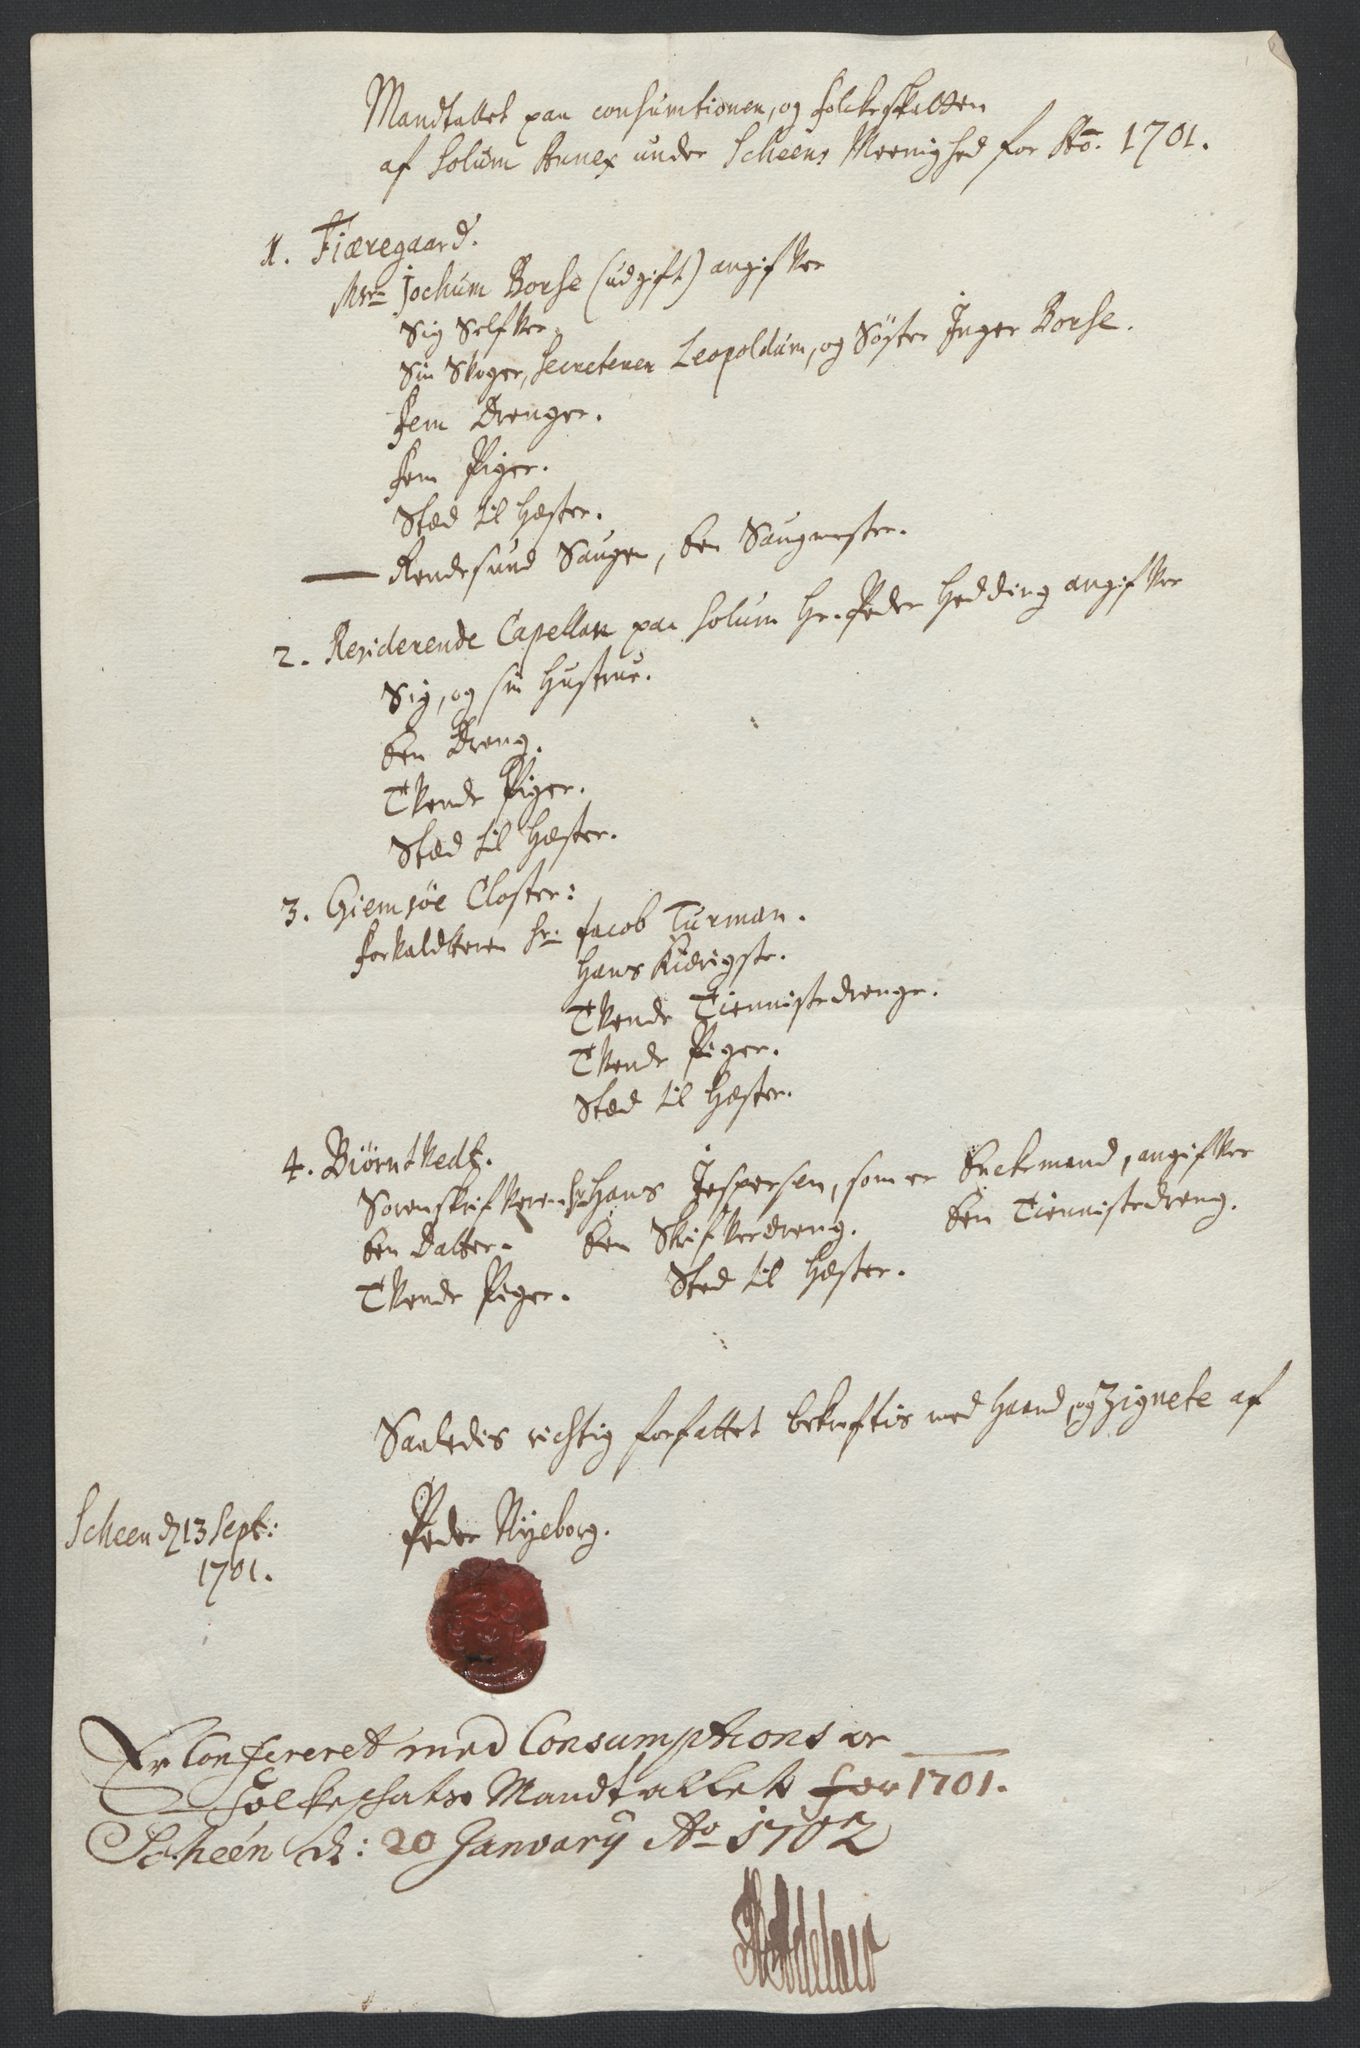 Mandtallet paa consumtionen, og folckeskatten
af Solum Annex under Scheens Meenighed for Ao. 1701.
1. Fiæregaard.
Msr. Jochum Borse (udgift) angifver
Sig Selfver,
Sin Svoger, Secreterer Leopoldum, og Søster Inger Borse.
Fem Drenger.
Fem Piger.
Stæd til Hæster.
— Rendesund Saugen, Een Saugmester.
2. Residerende Capellan paa Solum Hr. Peder Hedding angifver
Sig, og sin Hustrue.
Een Dreng.
Tvende Piger.
Stæd til Hæster.
3. Giemsøe Closter:
Forvaldteren Sr. Jacob Turman.
Hans Kiæriste.
Tvende Tiennistedrenge.
Tvende Piger.
Stæd til Hæster.
4. Biørntvedt.
Sorenskrifveren Sr. Hans Jespersen, som er Enckemand, angifver
Een Datter. Een Skrifverdreng. Een Tiennistedreng.
Tvende Piger. Stæd til Hæster.
Saaledis richtig forfattet bekreftis med Haand, og Zignete af
Scheen d. 13 Sept: Peder Nyeborg.
1701.
Er Confereret med Consumptions or
Folckeschats Mandtallet for 1701.
Scheen d: 20 January Ao 1702